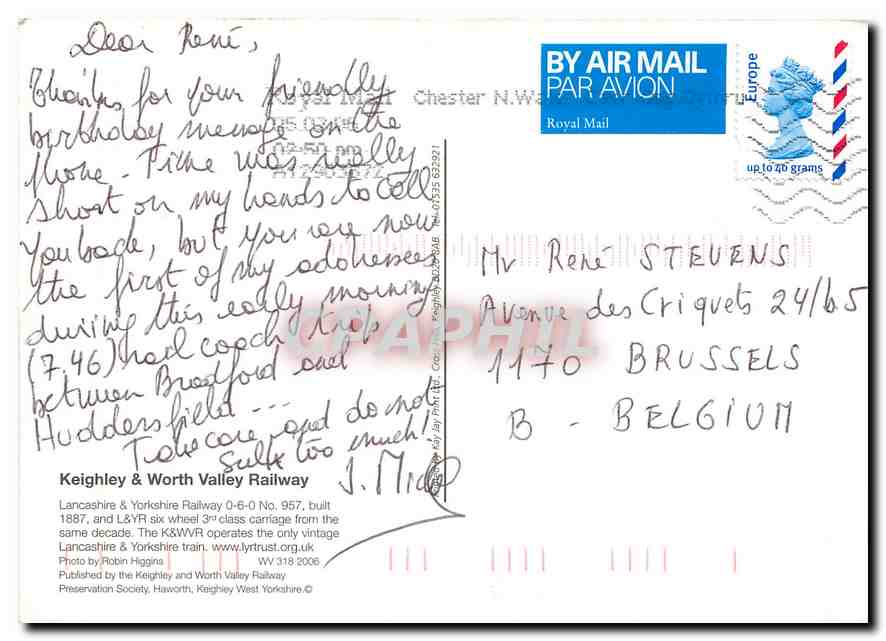 Dear René,
Thanks for your friendly
birthday message on the
phone. Time was really
short on my hands to call
you back, but you are now
the first of my addressees
during this early morning
(7.46) rail coach trip
between Bradford and
Huddersfield ...
Take care and do not
sulk too much!
J. Mich
Keighley & Worth Valley Railway
Lancashire & Yorkshire Railway 0-6-0 No. 957, built
1887, and L&YR six wheel 3rd class carriage from the
same decade. The K&WVR operates the only vintage
Lancashire & Yorkshire train. www.lyrtrust.org.uk
Photo by Robin Higgins WV 318 2006
Published by the Keighley and Worth Valley Railway
Preservation Society, Haworth, Keighley West Yorkshire.©
Kay Jay Print Ltd., Cross Keighley BD20 8AB. Tel: 07535 632921
Royal Mail Chester N.Wales
02:50 pm
BY AIR MAIL
PAR AVION
Royal Mail
Europe
up to 40 grams
Mr René STEVENS
Avenue des Criquets 24/b5
1170 BRUSSELS
B - BELGIUM
CPAPHIL